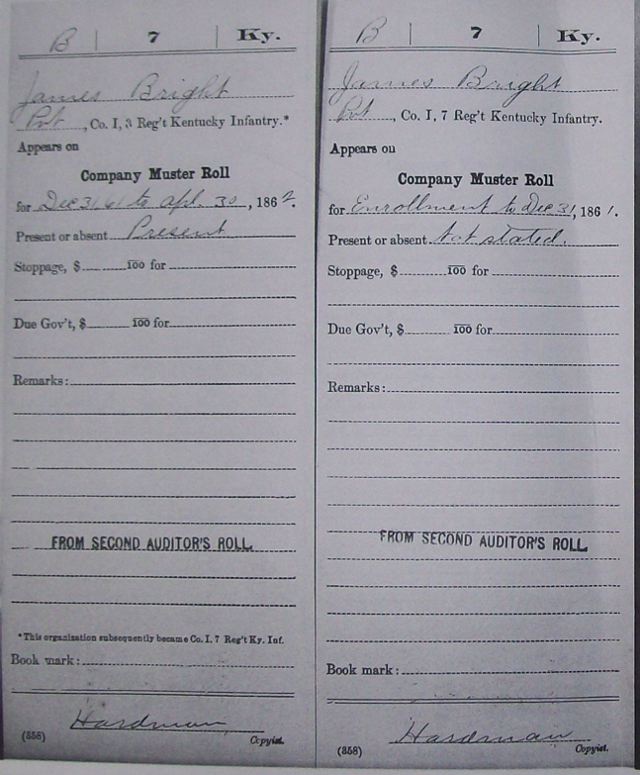 B | 7 | Ky.
James Bright
Pvt, Co. I, 3 Reg't Kentucky Infantry.*
Appears on
Company Muster Roll
for Dec 31, 61 to Apl. 30, 1862.
Present or absent Present
Stoppage, $ 100 for
Due Gov't, $ 100 for
Remarks:
FROM SECOND AUDITOR'S ROLL.
*This organization subsequently became Co. I, 7 Reg't Ky. Inf.
Book mark:
Hardman
(358) Copyist.
B | 7 | Ky.
James Bright
Pvt, Co. I, 7 Reg't Kentucky Infantry.
Appears on
Company Muster Roll
for Enrollment to Dec 31, 1861.
Present or absent Not stated.
Stoppage, $ 100 for
Due Gov't, $ 100 for
Remarks:
FROM SECOND AUDITOR'S ROLL.
Book mark:
Hardman
(358) Copyist.